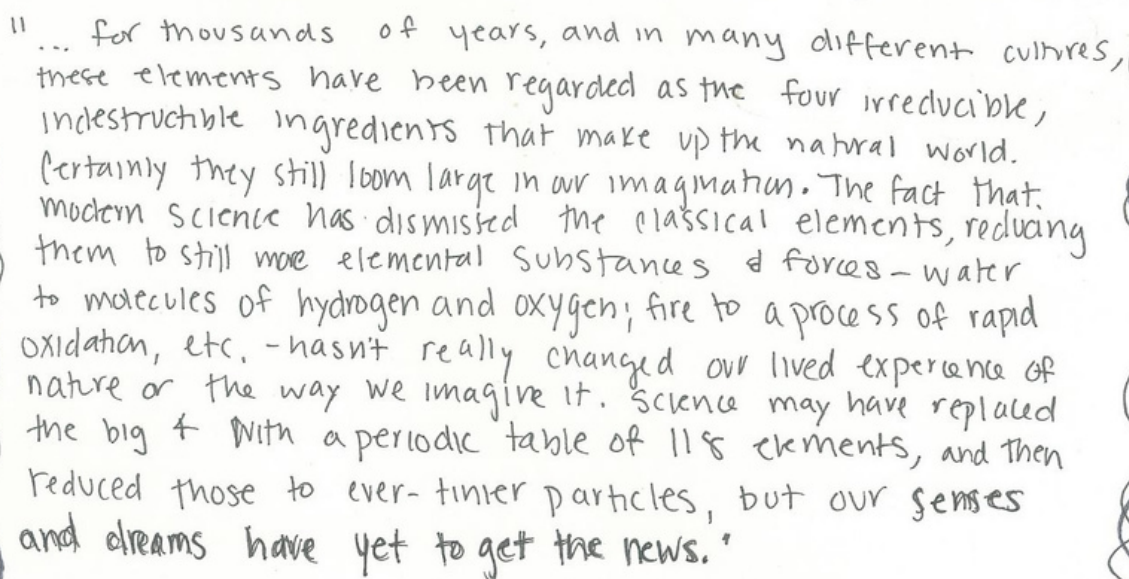 "... for thousands of years, and in many different cultures,
these elements have been regarded as the four irreducible,
indestructible ingredients that make up the natural world.
Certainly they still loom large in our imagination. The fact that
modern science has dismissed the classical elements, reducing
them to still more elemental substances & forces - water
to molecules of hydrogen and oxygen; fire to a process of rapid
oxidation, etc. - hasn't really changed our lived experience of
nature or the way we imagine it. Science may have replaced
the big 4 with a periodic table of 118 elements, and then
reduced those to ever-tinier particles, but our senses
and dreams have yet to get the news."